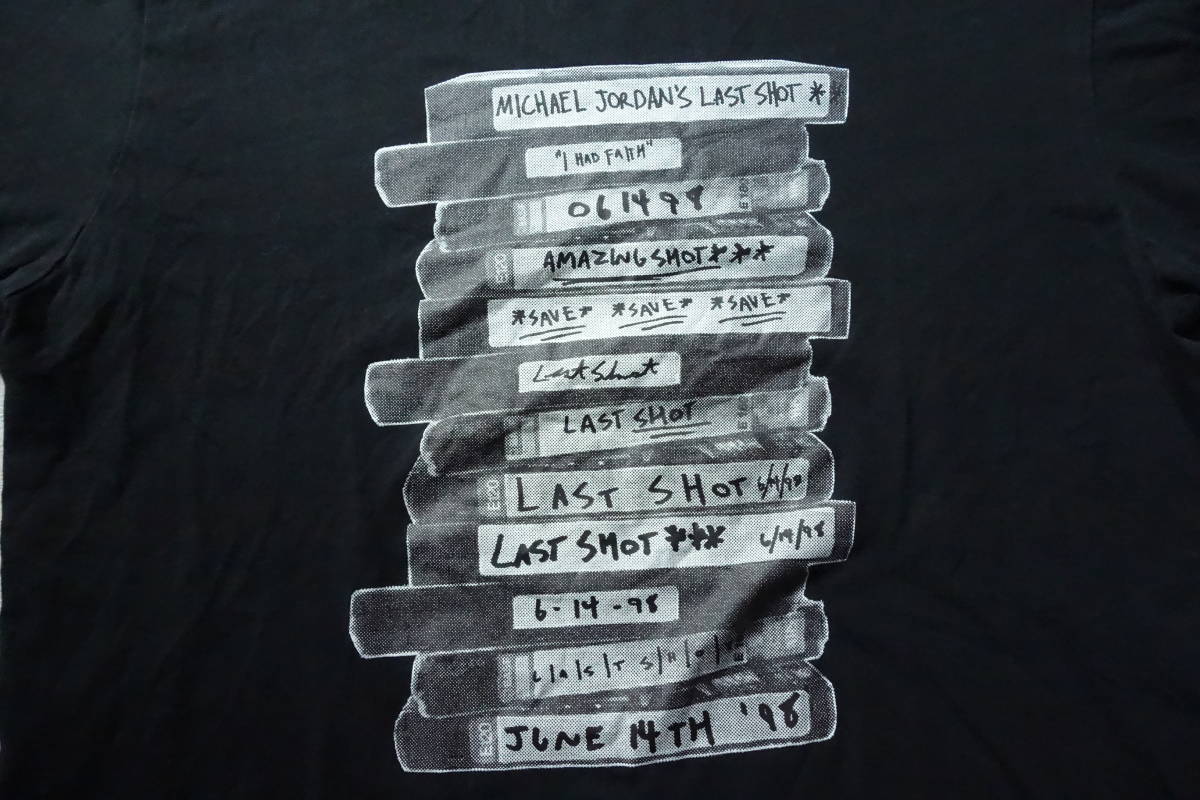 MICHAEL JORDAN'S LAST SHOT **
"I HAD FAITH"
061498
AMAZING SHOT***
E120
*SAVE* *SAVE* *SAVE*
Last Shot
LAST SHOT
E120 LAST SHOT 6/14/98
LAST SHOT *** 6/14/98
6-14-98
L/A/S/T S/H/O/T
E120 JUNE 14TH '98